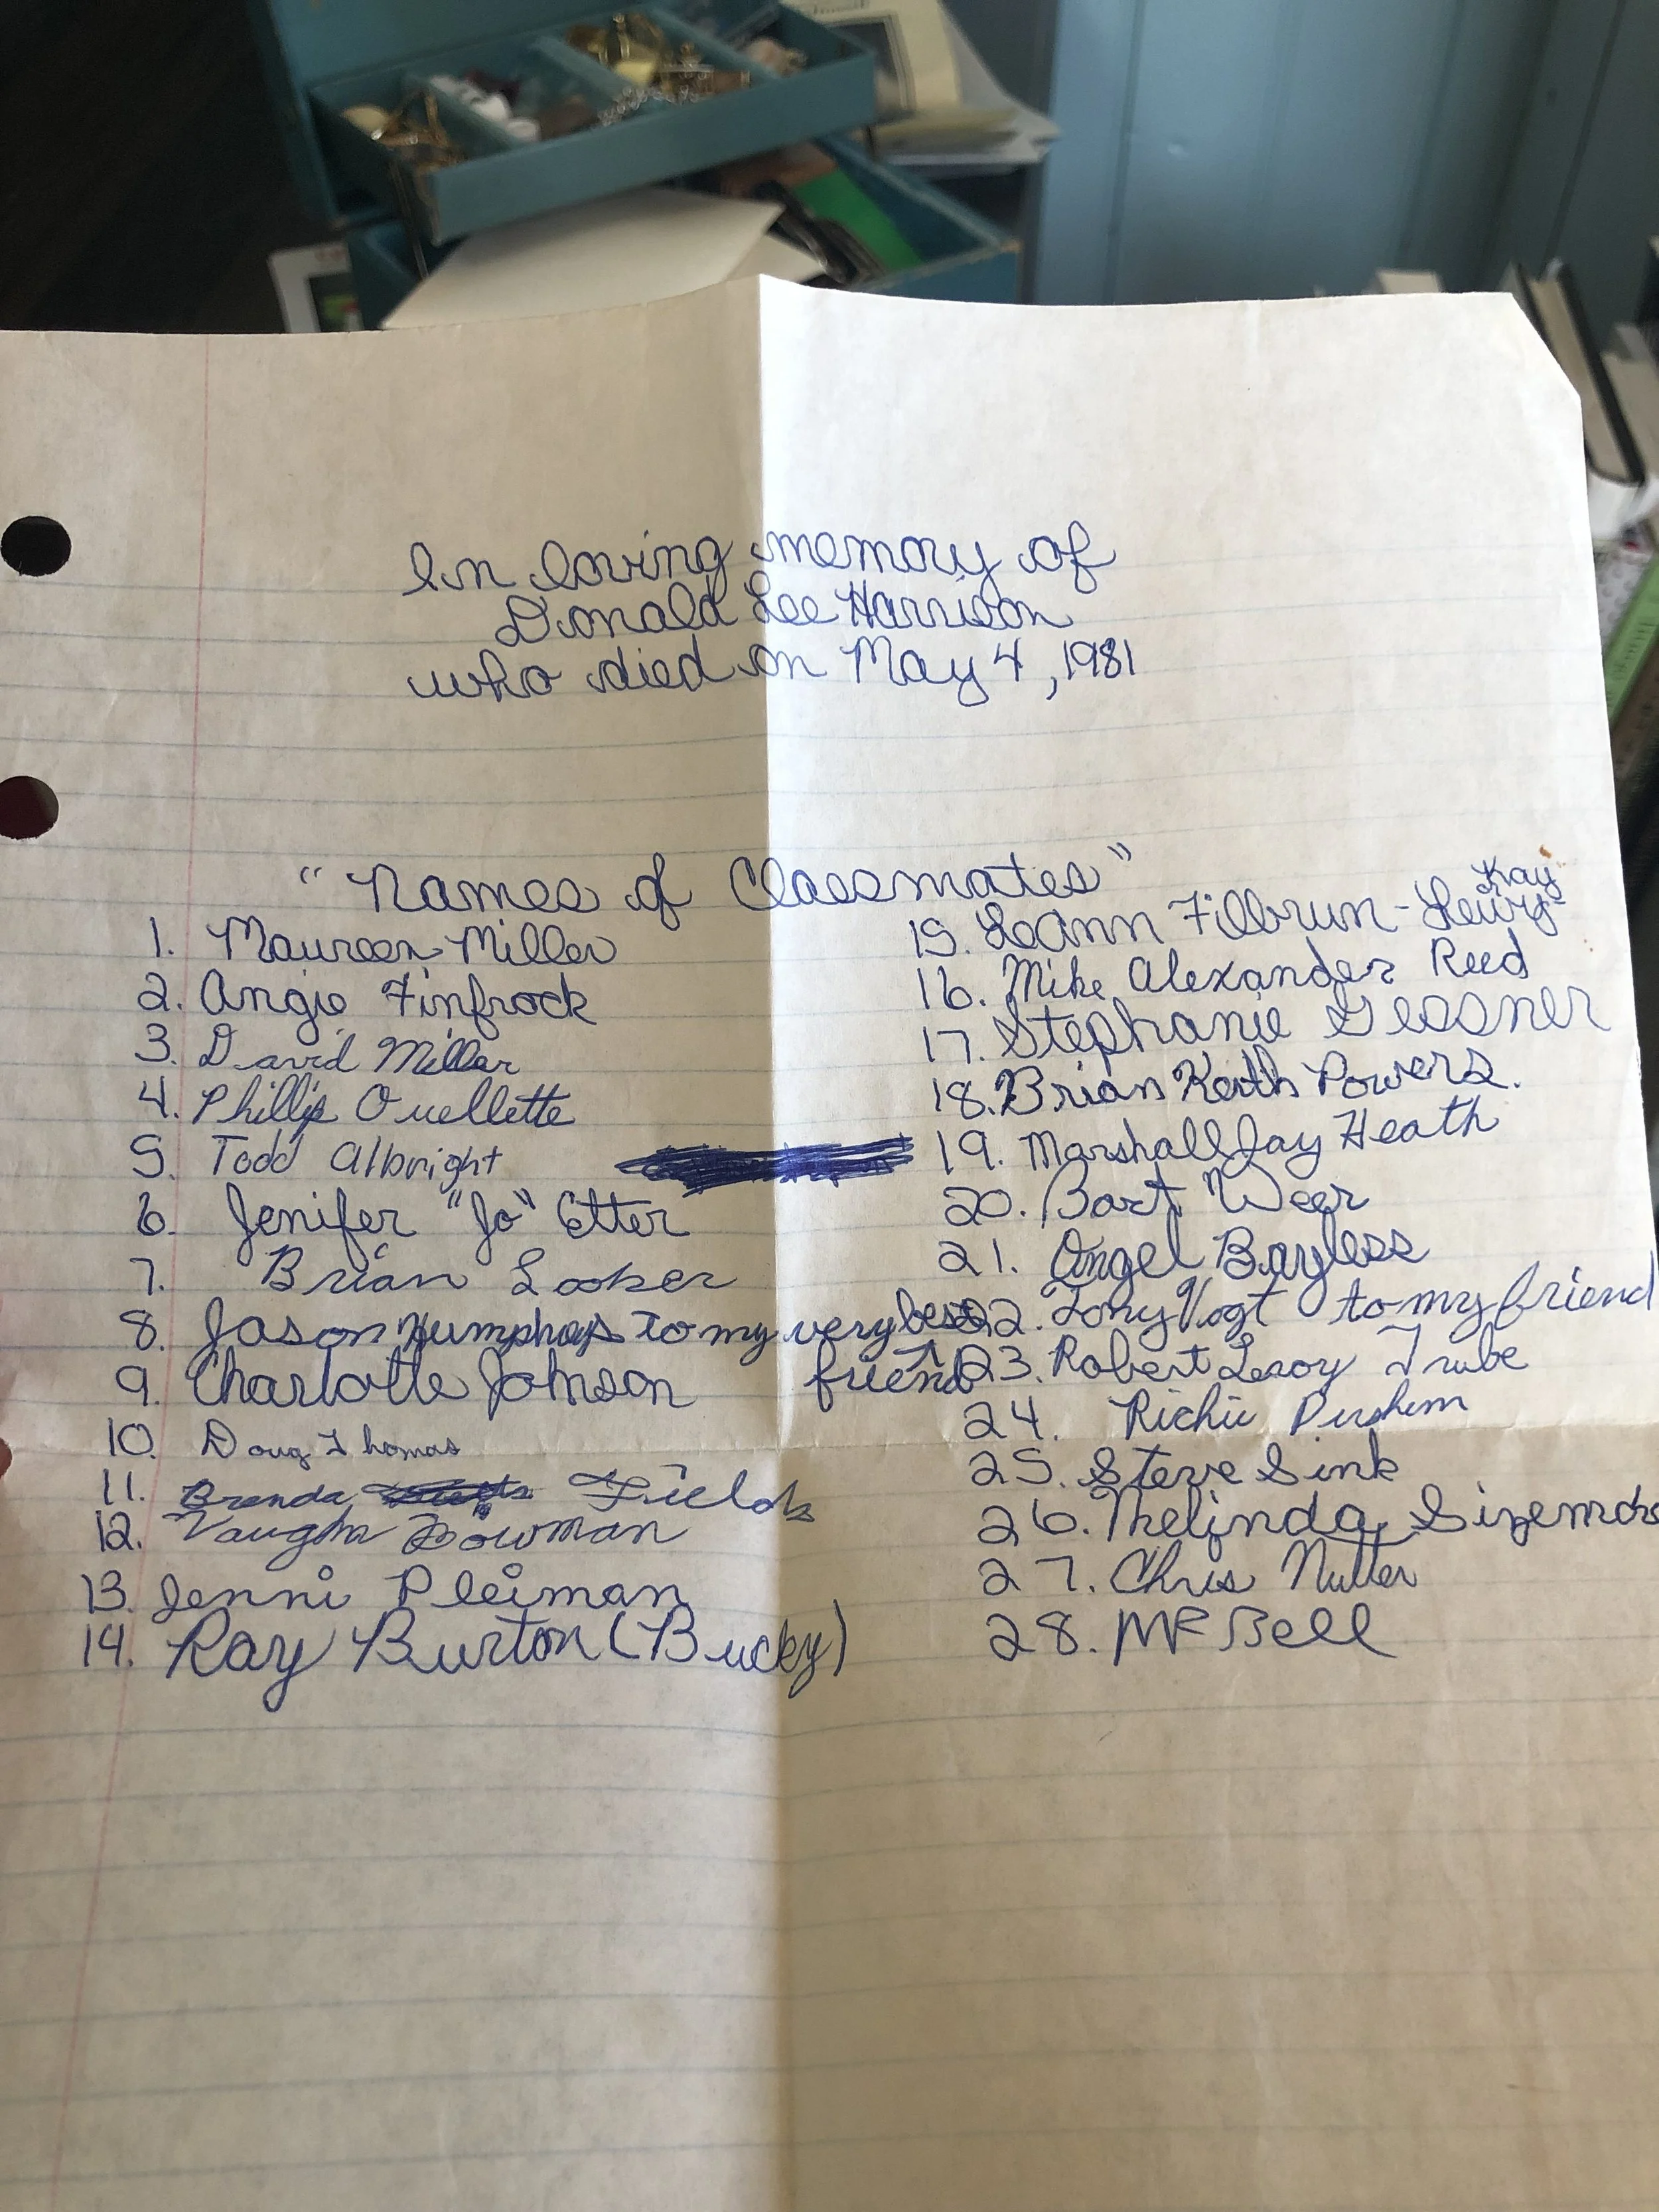 In loving memory of
Donald Lee Harrison
who died on May 4, 1981
"Names of Classmates"
1. Maureen Miller
2. Angie Finfrock
3. David Miller
4. Phillip Ouellette
5. Todd Albright
6. Jenifer "Jo" Etter
7. Brian Looker
8. Jason Humphreys to my very best
friend
9. Charlotte Johnson
10. Doug Thomas
11. Brenda Fields
12. Vaughn Bowman
13. Jenni Pleiman
14. Ray Burton (Bucky)
Kay
15. LeAnn Filbrun-
16. Mike Alexander Reed
17. Stephanie Gessner
18. Brian Keith Powers.
19. Marshall Jay Heath
20. Bart Weer
21. Angel Bayless
22. Tony Vogt to my friend
23. Robert Leroy Trube
24. Richie
25. Steve Sink
26. Thelinda Sizemore
27. Chris Nutter
28. Bell